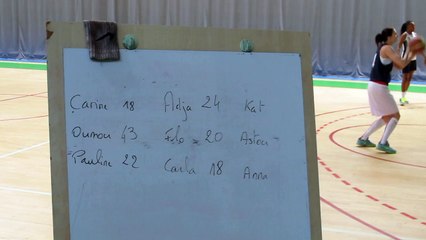 Carine 18 Adja 24 Kat
Oumou 43 Felo 20 Astou
Pauline 22 Carla 18 Anna